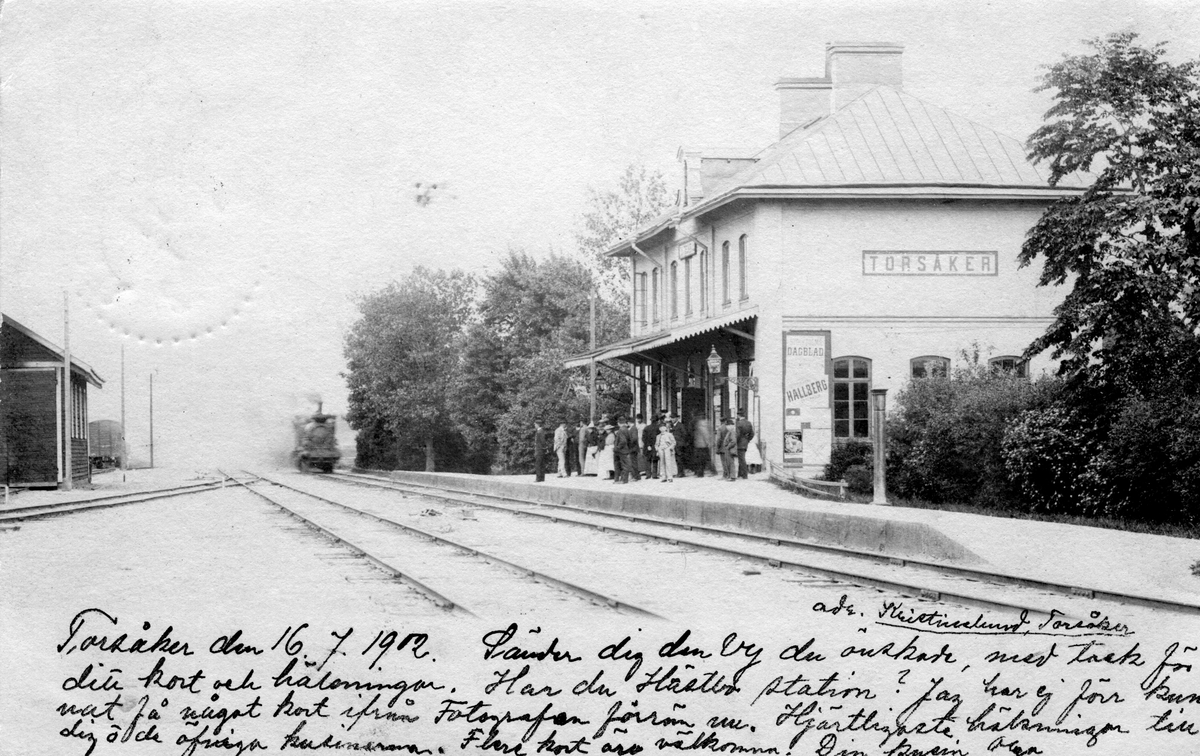 TORSÅKER
DAGBLAD
HALLBERG
adr. Kristinelund, Torsåker
Torsåker den 16. 7. 1902. Sänder dig den Vy du önskade, med tack för
ditt kort och hälsningar. Har du Hästbo station? Jag har ej förr kun
nat få något kort ifrån Fotografen förrän nu. Hjärtligaste hälsningar till
dig å de öfriga kusinerna. Flere kort äro välkomna. Din kusin Olga